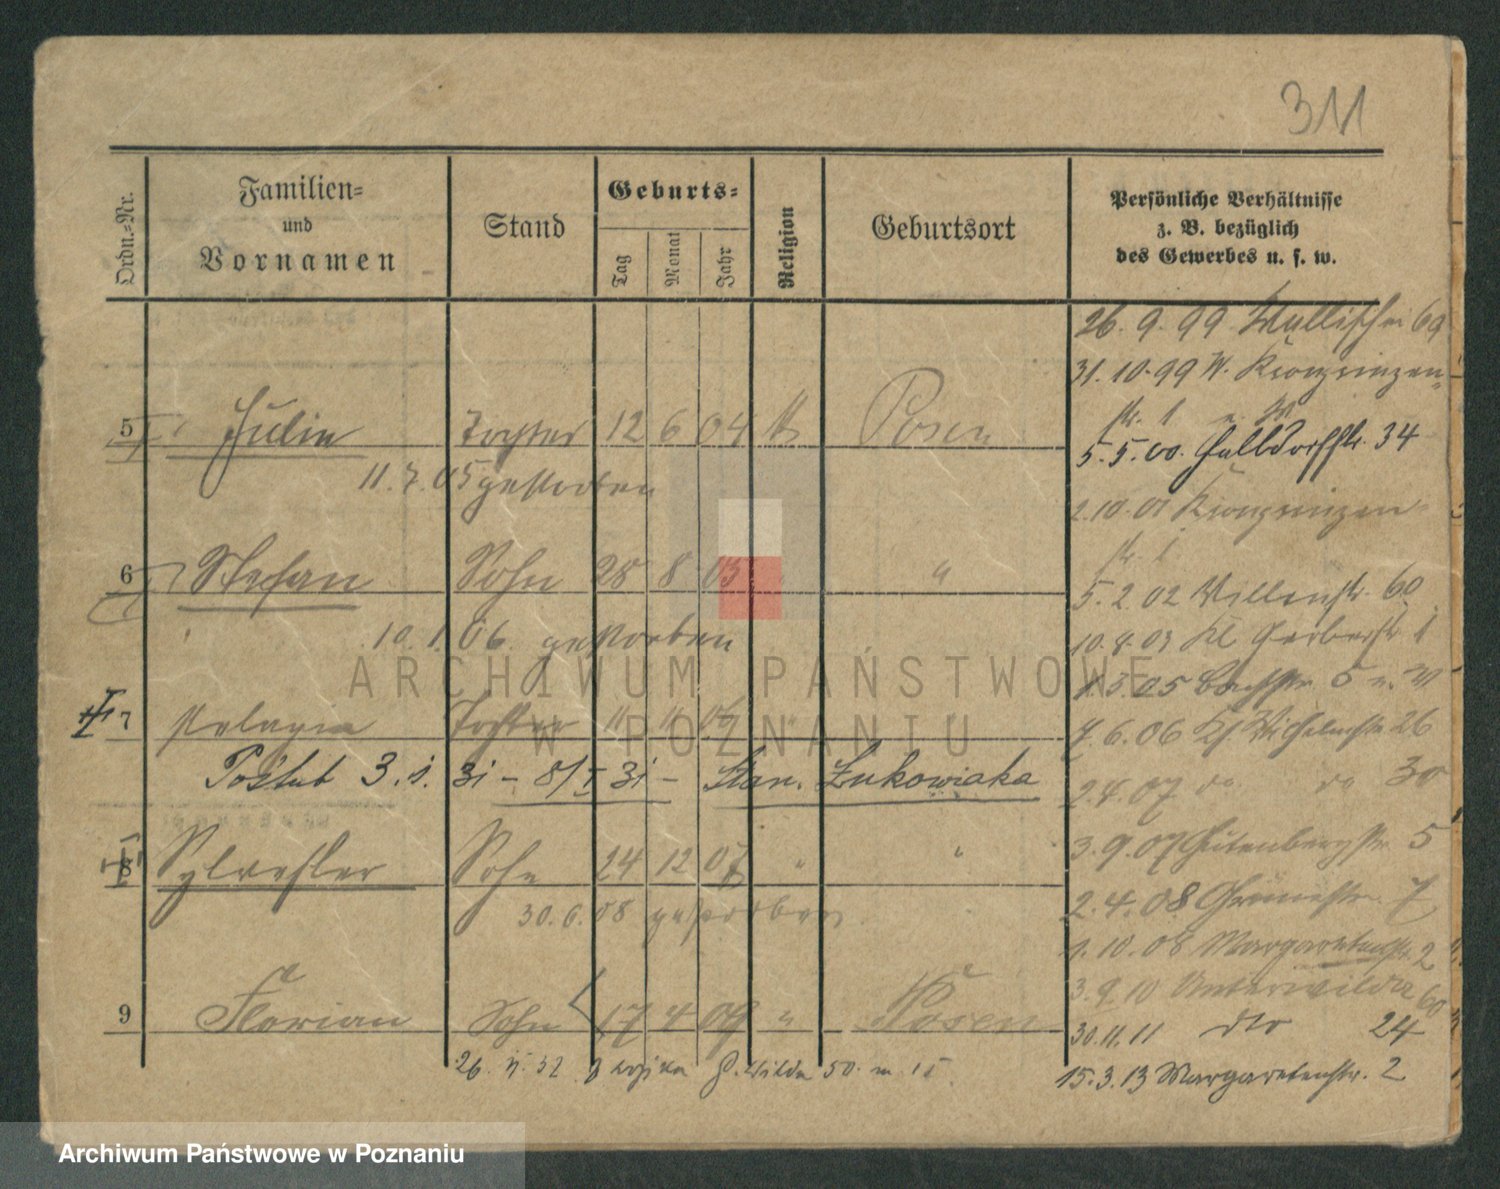 311
Ordn.-Nr.
Familien-
und
Vornamen
Stand
Geburts-
Tag
Monat
Jahr
Religion
Geburtsort
Persönliche Verhältnisse
z. B. bezüglich
des Gewerbes u. s. w.
26. 9. 99 Wallischei 69
31. 10. 99 W. Kronprinzen-
str. 1
5 Julie Tochter 12 6 04 Posen
5. 5. 00. Halldorfstr. 34
11. 7. 05 gestorben
2. 10. 01 Kronprinzen-
str. 1
6 Stefan Sohn 28 8 05 "
5. 2. 02 Villenstr. 60
10. 1. 06. gestorben
10. 8. 03 Kl Gerberstr. 1
1. 3. 05 Bachstr. 5
7 Pelagia Tochter 11 11 06 "
7. 6. 06 Kl Wilhelmstr 26
Posłub 3. 1. 31 - 8/I 31 - Stan. Łukowiaka
2. 4. 07 do do 30
3. 9. 07 Gutenbergstr. 5
8 Sylvester Sohn 24 12 07 " "
2. 4. 08 7
30. 6. 08 gestorben
1. 10. 08 Margaretenstr. 2
3. 9. 10 Unterwilda 60
9 Florian Sohn 17 4 09 " Posen
30. 11. 11 dto 24
26. 32 G. Wilda 50 m. 15
15. 3. 13 Margaretenstr. 2
ARCHIWUM PAŃSTWOWE
W POZNANIU
Archiwum Państwowe w Poznaniu